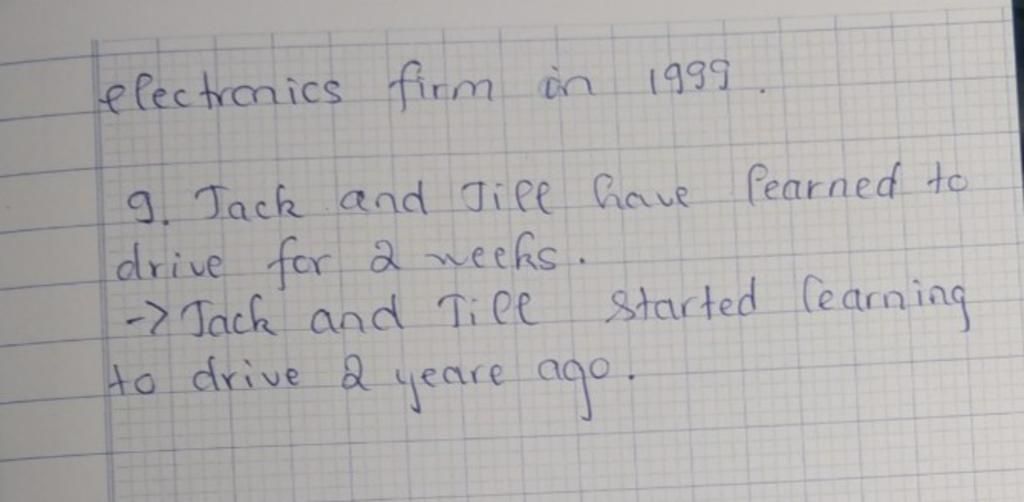 electronics firm in 1999.
9. Jack and Jill have learned to
drive for 2 weeks.
-> Jack and Jill started learning
to drive 2 yeare ago.